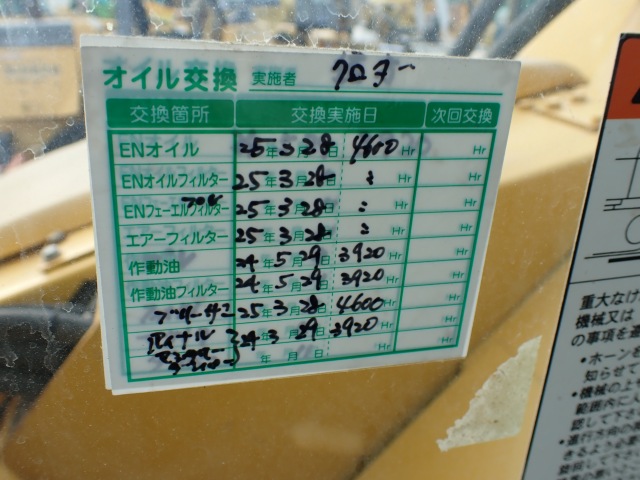 オイル交換 実施者 クロダー
交換箇所 交換実施日 次回交換
ENオイル 25年3月28日 4600Hr Hr
ENオイルフィルター 25年3月28日 〃Hr Hr
ENフューエルフィルター プレ 25年3月28日 〃Hr Hr
エアーフィルター 25年3月28日 〃Hr Hr
作動油 24年5月29日 3920Hr Hr
作動油フィルター 24年5月29日 3920Hr Hr
ブリーザー 25年3月28日 4600Hr Hr
ファイナル 24年3月29日 3920Hr Hr
年 月 日 Hr Hr
重大なけ
機械又は
の事項を
・ホーン
知らせて
・機械の上
範囲内に
認して下
・進行方向の
きるよう必要